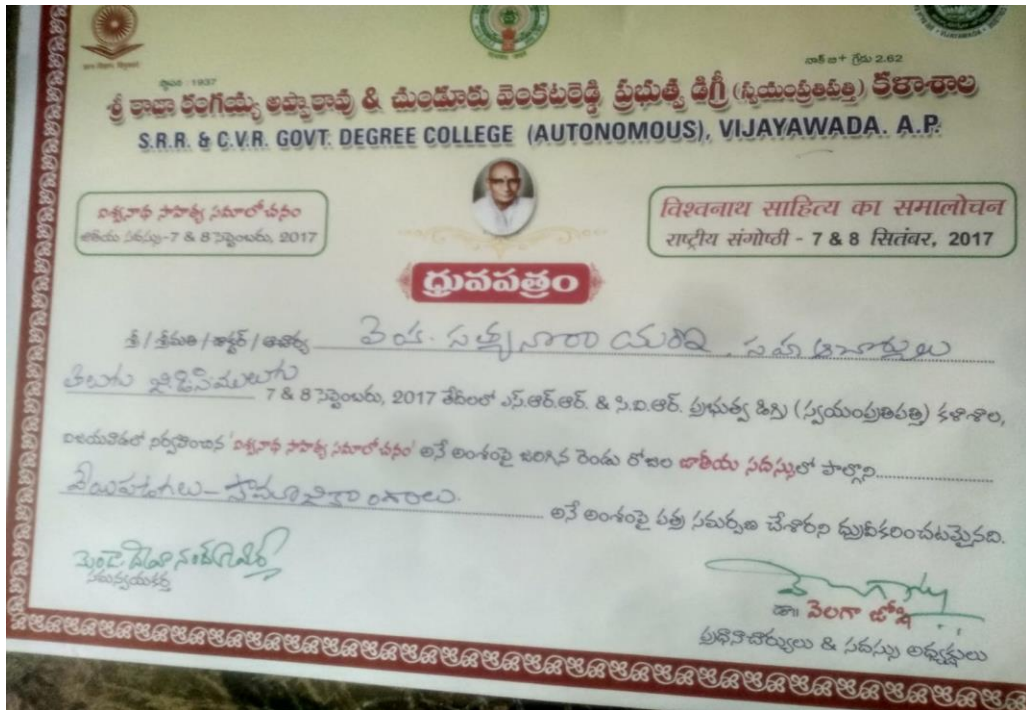 స్థాపన : 1937
నాక్ బి+ గ్రేడు 2.62
శ్రీ రాజా రంగయ్య అప్పారావు & చుండూరు వెంకటరెడ్డి ప్రభుత్వ డిగ్రీ (స్వయంప్రతిపత్తి) కళాశాల
S.R.R. & C.V.R. GOVT. DEGREE COLLEGE (AUTONOMOUS), VIJAYAWADA. A.P.
విశ్వనాథ సాహిత్య సమాలోచనం
జాతీయ సదస్సు-7 & 8 సెప్టెంబరు, 2017
विश्वनाथ साहित्य का समालोचन
राष्ट्रीय संगोष्ठी - 7 & 8 सितंबर, 2017
ధ్రువపత్రం
శ్రీ / శ్రీమతి / డాక్టర్ / ఆచార్య సత్యనారాయణ, సహ ఆచార్యులు
తెలుగు 7 & 8 సెప్టెంబరు, 2017 తేదీలలో ఎస్.ఆర్.ఆర్. & సి.వి.ఆర్. ప్రభుత్వ డిగ్రీ (స్వయంప్రతిపత్తి) కళాశాల,
విజయవాడలో నిర్వహించిన 'విశ్వనాథ సాహిత్య సమాలోచనం' అనే అంశంపై జరిగిన రెండు రోజుల జాతీయ సదస్సులో పాల్గొని
వేయిపడగలు - సామాజికాంశాలు. అనే అంశంపై పత్ర సమర్పణ చేశారని ధ్రువీకరించటమైనది.
సమన్వయకర్త
డా॥ వెలగా జోషి
ప్రధానాచార్యులు & సదస్సు అధ్యక్షులు